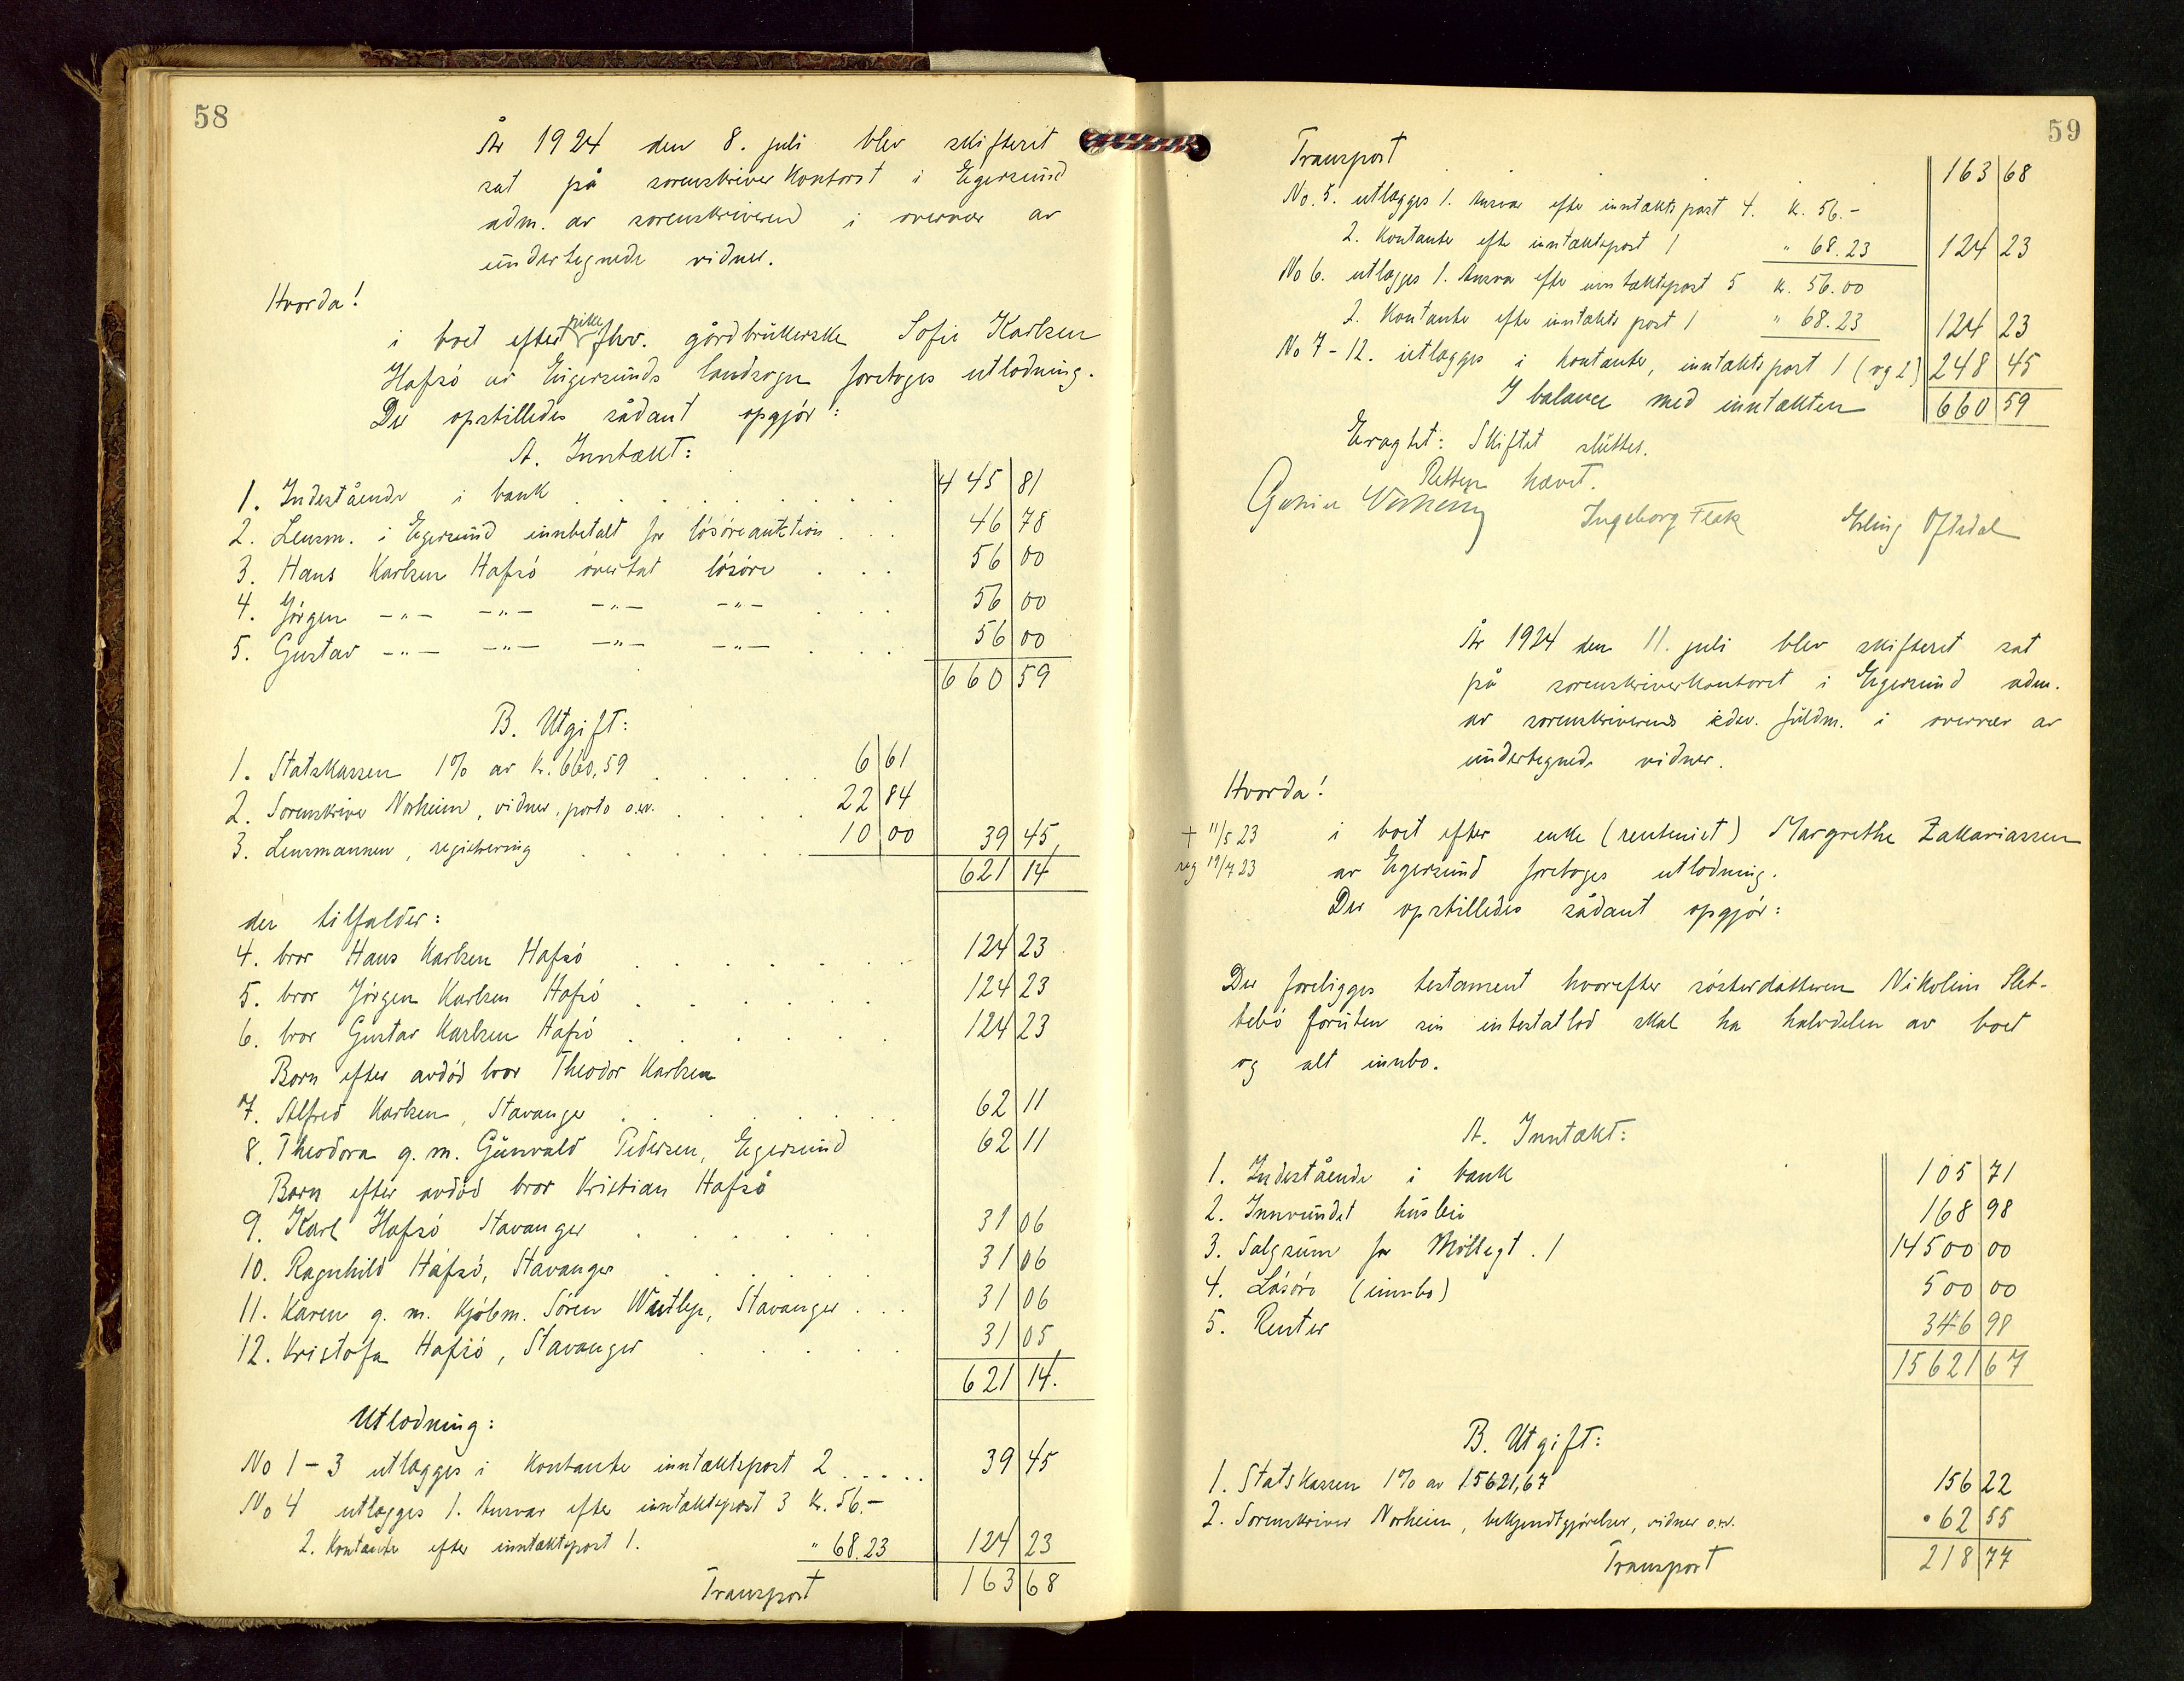 58
År 1924 den 8. juli blev skifteret
sat på sorenskriverkontoret i Egersund
adm. av sorenskriveren i overvær av
undertegnede vidner.
Hvorda!
i boet efter pike fhv. gårdbrukerske Sofie Karlsen
Hafsö av Eigersunds landsogn foretoges utlodning.
Der opstilledes sådant opgjör:
A. Inntækt:
1. Indestående i bank . . . . . . . . 445 81
2. Lensm. i Egersund innbetalt for lösöreauktion . . . 46 78
3. Hans Karlsen Hafsö övertat lösöre . . . 56 00
4. Jörgen -"- -"- -"- -"- . . . 56 00
5. Gustav -"- -"- -"- -"- . . . 56 00
660 59
B. Utgift:
1. Statskassen 1% av kr. 660,59 . . . . . 6 61
2. Sorenskriver Norheim, vidner, porto o.sv. . . . . 22 84
3. Lensmannen, registrering . . . . . . 10 00 39 45
621 14
der tilfalder:
4. bror Hans Karlsen Hafsö . . . . . . . 124 23
5. bror Jörgen Karlsen Hafsö . . . . . . 124 23
6. bror Gustav Karlsen Hafsö . . . . . . 124 23
Born efter avdöd bror Theodor Karlsen
7. Alfred Karlsen, Stavanger . . . . . . . 62 11
8. Theodora g. m. Gunvald Pedersen, Egersund 62 11
Born efter avdöd bror Kristian Hafsö
9. Karl Hafsö Stavanger . . . . . . 31 06
10. Ragnhild Hafsö, Stavanger . . . . . . 31 06
11. Karen g. m. Kjöbm. Sören Westbye, Stavanger . . . 31 06
12. Kristofa Hafsö, Stavanger . . . . . 31 05
621 14.
Utlodning:
No 1-3 utlægges i kontante inntæktspost 2 . . . . . 39 45
No 4 utlægges 1. Ansvar efter inntæktspost 3 kr. 56.-
2. Kontante efter inntæktspost 1. " 68.23 124 23
Transport 163 68
59
Transport 163 68
No. 5. utlægges 1. Ansvar efter inntæktspost 4. k. 56.-
2. Kontante efter inntæktspost 1 " 68.23 124 23
No 6. utlægges 1. Ansvar efter inntæktspost 5 kr. 56.00
2. Kontante efter inntækts post 1 " 68.23 124 23
No 7-12. utlægges i kontanter, inntækts post 1 (og 2) 248 45
I balance med inntækten 660 59
Eragtet: Skiftet sluttes.
Retten hævet.
Norheim Ingeborg Fleck Erling Oftedal
År 1924 den 11. juli blev skifteret sat
på sorenskriverkontoret i Egersund adm.
av sorenskriverens edsv. fuldm. i overvær av
undertegnede vidner.
Hvorda!
† 11/5 23 i boet efter enke (rentenist) Margrethe Zakariassen
reg 19/7 23 av Egersund foretoges utlodning.
Der opstilledes sådant opgjör:
Der foreligges testament hvorefter sösterdatteren Nikoline Slet-
tebö foruten sin intestatlod skal ha halvdelen av boet
og alt innbo.
A. Inntækt:
1. Indestående i bank 105 71
2. Innvundet husleie 168 98
3. Salgsum for Möllegt. 1 14500 00
4. Lösöre (innbo) 500 00
5. Renter 346 98
15621 67
B. Utgift:
1. Statskassen 1% av 15621,67 156 22
2. Sorenskriver Norheim, bekjendtgjörelser, vidner o.sv. 62 55
Transport 218 77